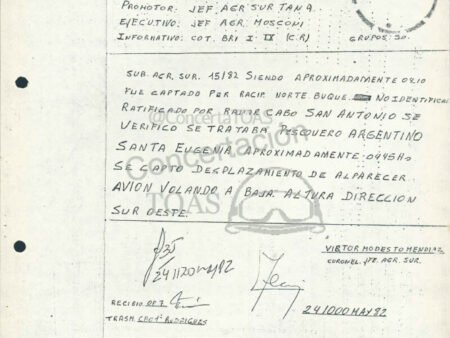 PROMOTOR: JEF. AGR. SUR TAN A.
EJECUTIVO: JEF AGR. MOSCONI
INFORMATIVO: COT. BRI I - IX (C.R) GRUPOS: 50
SUB. AGR. SUR. 15/82 SIENDO APROXIMADAMENTE 0210
FUE CAPTADO POR RACIP. NORTE BUQUE NO IDENTIFICA
RATIFICADO POR RADAR CABO SAN ANTONIO SE
@ConcertaTOAS
VERIFICO SE TRATABA PESQUERO ARGENTINO
SANTA EUGENIA APROXIMADAMENTE 0445HS
Concertación
SE CAPTO DESPLAZAMIENTO DE ALPARECER
AVION VOLANDO A BAJA ALTURA DIRECCION
TOAS
SUR OESTE.
VICTOR MODESTO MENDIAZ
CORONEL. JEF. AGR. SUR.
RECIBIO OPT.
241000 MAY 82
TRASM. CBO 1º RODRIGUES